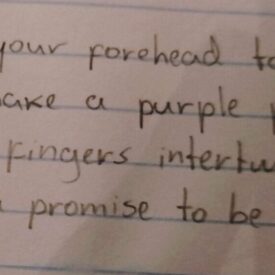 your forehead to
ake a purple
fingers intertw
promise to be